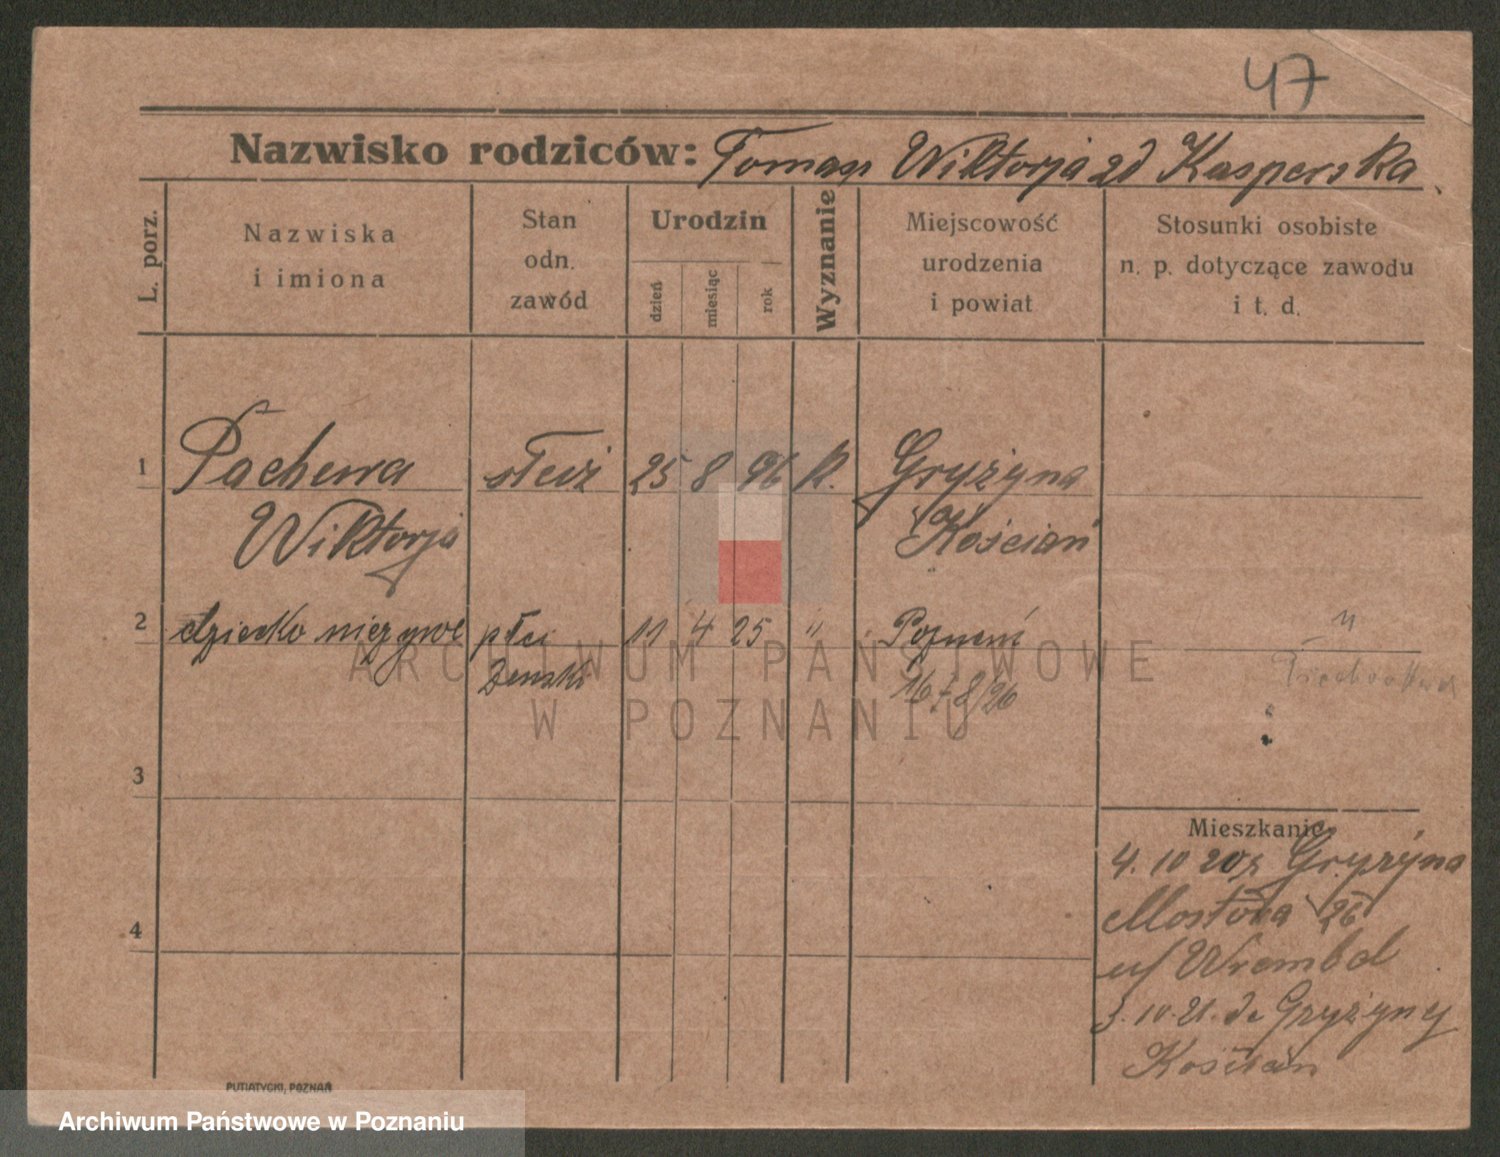 47
Nazwisko rodziców: Tomasz Wiktorja zd Kasperska
L. porz.
Nazwiska
i imiona
Stan
odn.
zawód
Urodzin
dzień
miesiąc
rok
Wyznanie
Miejscowość
urodzenia
i powiat
Stosunki osobiste
n. p. dotyczące zawodu
i t. d.
1 Pachewa służ 25 8 96 K. Gryżyna
Wiktorja Kościan
2 dziecko nieżywe płci 11 4 25 " Poznań
żeński 16 8/26
3
4
Mieszkanie
4. 10 20 z Gryżyna
Mostowa 26
u/ Wrembel
3. 10. 21. do Gryżyny
Kościan
PUTIATYCKI, POZNAŃ
ARCHIWUM PAŃSTWOWE
W POZNANIU
Archiwum Państwowe w Poznaniu